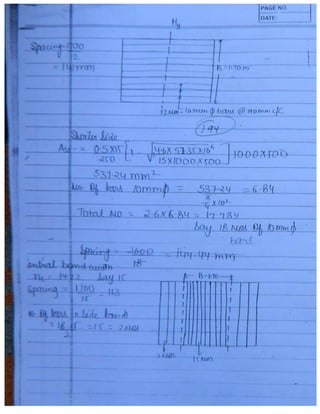 PAGE NO.
DATE:
Ny
Spacing
= 141mm
B=1.70m
12 Nos-10mm ϕ bars @ 140mm c/c
194
Shorter Side
Ast = 0.5x15 / 250 [1- √ 4.6x57.35x10⁶ / 15x1000x500 ] 1000x500
537.24 mm²
No. Of bars 10mmϕ = 537.24 / π/4 x10² = 6.84
Total No = 2.6x6.84 = 17.784
Say 18 Nos Of 10mmϕ
bars
Spacing = 2600 / 18 = 144.44 mm
Central band width
= 14.22 Say 15
Spacing = 1700 / 15 = 113
B=1.70
No. Of bars in Side band
= 18-15 / 2 = 1.5 = 2 Nos
2 Nos
15 Nos